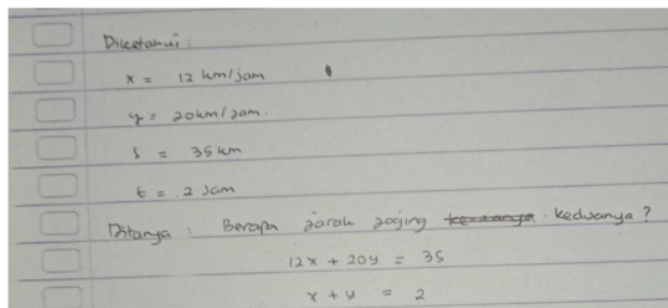 Diketahui :
x = 12 km/jam
y = 20 km/jam.
s = 35 km
t = 2 Jam
Ditanya : Berapa jarak joging keduanya ?
12x + 20y = 35
x + y = 2